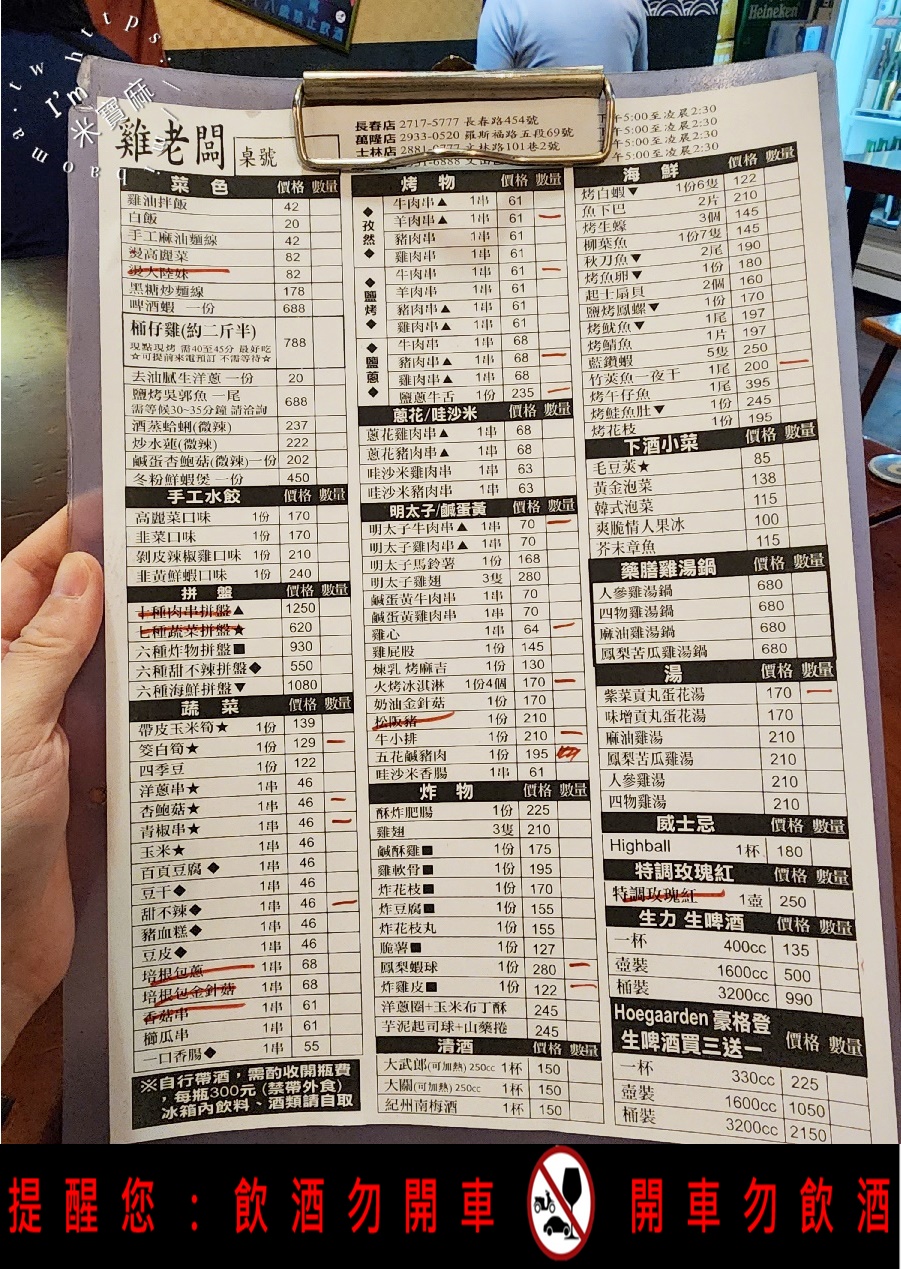 https
.tw
I'm
米寶麻
八歲禁止飲酒
Heineken
雞老闆
桌號
長春店 2717-5777 長春路454號
萬隆店 2933-0520 羅斯福路五段69號
士林店 2881-0777 文林路101巷2號
午5:00至凌晨2:30
午5:00至凌晨2:30
午5:00至凌晨2:30
午5:00至凌晨2:30
菜 色 價格 數量
雞油拌飯 42
白飯 20
手工麻油麵線 42
燙高麗菜 82
燙大陸妹 82
黑糖炒麵線 178
啤酒蝦 一份 688
桶仔雞(約二斤半) 788
現點現烤 需40至45分 最好吃
☆可提前來電預訂 不需等待☆
去油膩生洋蔥 一份 20
鹽烤吳郭魚 一尾 688
需等候30~35分鐘 請洽詢
酒蒸蛤蜊(微辣) 237
炒水蓮(微辣) 222
鹹蛋杏鮑菇(微辣)一份 202
冬粉鮮蝦煲 一份 450
手工水餃 價格 數量
高麗菜口味 1份 170
韭菜口味 1份 170
剝皮辣椒雞口味 1份 210
韭黃鮮蝦口味 1份 240
拼 盤 價格 數量
七種肉串拼盤▲ 1250
七種蔬菜拼盤★ 620
六種炸物拼盤■ 930
六種甜不辣拼盤◆ 550
六種海鮮拼盤▼ 1080
蔬 菜 價格 數量
帶皮玉米筍★ 1份 139
筊白筍★ 1份 129
四季豆 1份 122
洋蔥串★ 1串 46
杏鮑菇★ 1串 46
青椒串★ 1串 46
玉米★ 1串 46
百頁豆腐◆ 1串 46
豆干◆ 1串 46
甜不辣◆ 1串 46
豬血糕◆ 1串 46
豆皮◆ 1串 46
培根包蔥 1串 68
培根包金針菇 1串 68
香菇串 1串 61
櫛瓜串 1串 61
一口香腸◆ 1串 55
※自行帶酒，需酌收開瓶費
，每瓶300元 (禁帶外食)
冰箱內飲料、酒類請自取
烤 物 價格 數量
◆孜然◆
牛肉串▲ 1串 61
羊肉串▲ 1串 61
豬肉串 1串 61
雞肉串 1串 61
◆鹽烤◆
牛肉串 1串 61
羊肉串 1串 61
豬肉串▲ 1串 61
雞肉串▲ 1串 61
◆鹽蔥◆
牛肉串 1串 68
豬肉串▲ 1串 68
雞肉串▲ 1串 68
鹽蔥牛舌 1份 235
蔥花/哇沙米 價格 數量
蔥花雞肉串▲ 1串 68
蔥花豬肉串▲ 1串 68
哇沙米雞肉串 1串 63
哇沙米豬肉串 1串 63
明太子/鹹蛋黃 價格 數量
明太子牛肉串▲ 1串 70
明太子雞肉串▲ 1串 70
明太子馬鈴薯 1份 168
明太子雞翅 3隻 280
鹹蛋黃牛肉串 1串 70
鹹蛋黃雞肉串 1串 70
雞心 1串 64
雞屁股 1份 145
煉乳 烤麻吉 1份 130
火烤冰淇淋 1份4個 170
奶油金針菇 1份 170
松阪豬 1份 210
牛小排 1份 210
五花鹹豬肉 1份 195
哇沙米香腸 1串 61
炸 物 價格 數量
酥炸肥腸 1份 225
雞翅 3隻 210
鹹酥雞■ 1份 175
雞軟骨■ 1份 195
炸花枝■ 1份 170
炸豆腐■ 1份 155
炸花枝丸 1份 155
脆薯■ 1份 127
鳳梨蝦球 1份 280
炸雞皮■ 1份 122
洋蔥圈+玉米布丁酥 245
芋泥起司球+山藥捲 245
清酒 價格 數量
大武郎(可加熱) 250cc 1杯 150
大關(可加熱) 250cc 1杯 150
紀州南梅酒 1杯 150
海 鮮 價格 數量
烤白蝦▼ 1份6隻 122
魚下巴 2片 210
烤生蠔 3個 145
柳葉魚 1份7隻 145
秋刀魚▼ 2尾 190
烤魚卵▼ 1份 180
起士扇貝 2個 160
鹽烤鳳螺▼ 1份 170
烤魷魚▼ 1尾 197
烤鯖魚 1片 197
藍鑽蝦 5隻 250
竹莢魚一夜干 1尾 200
烤午仔魚 1尾 395
烤鮭魚肚▼ 1份 245
烤花枝 1份 195
下酒小菜 價格 數量
毛豆莢★ 85
黃金泡菜 138
韓式泡菜 115
爽脆情人果冰 100
芥末章魚 115
藥膳雞湯鍋 價格 數量
人參雞湯鍋 680
四物雞湯鍋 680
麻油雞湯鍋 680
鳳梨苦瓜雞湯鍋 680
湯 價格 數量
紫菜貢丸蛋花湯 170
味增貢丸蛋花湯 170
麻油雞湯 210
鳳梨苦瓜雞湯 210
人參雞湯 210
四物雞湯 210
威士忌 價格 數量
Highball 1杯 180
特調玫瑰紅 價格 數量
特調玫瑰紅 1壺 250
生力 生啤酒 價格 數量
一杯 400cc 135
壺裝 1600cc 500
桶裝 3200cc 990
Hoegaarden 豪格登
生啤酒買三送一 價格 數量
一杯 330cc 225
壺裝 1600cc 1050
桶裝 3200cc 2150
提醒您：飲酒勿開車 開車勿飲酒